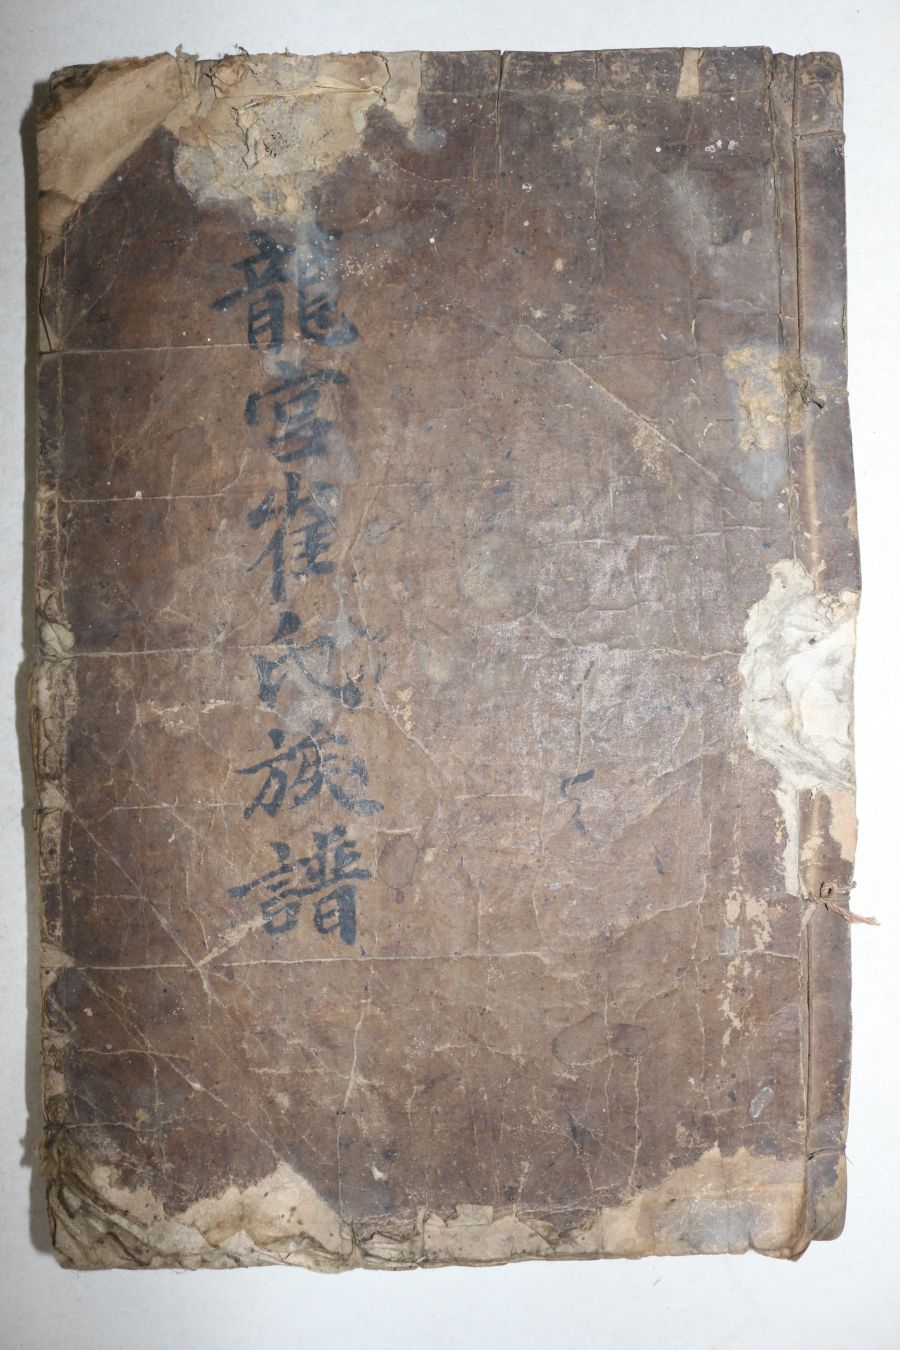 龍宮崔氏族譜